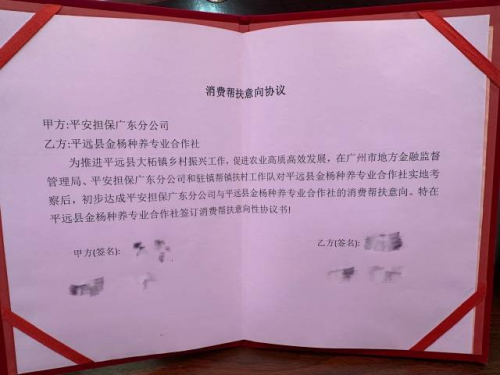 消费帮扶意向协议
甲方:平安担保广东分公司
乙方:平远县金杨种养专业合作社
为推进平远县大柘镇乡村振兴工作，促进农业高质高效发展，在广州市地方金融监督
管理局、平安担保广东分公司和驻镇帮镇扶村工作队对平远县金杨种养专业合作社实地考
察后，初步达成平安担保广东分公司与平远县金杨种养专业合作社的消费帮扶意向。特在
平远县金杨种养专业合作社签订消费帮扶意向性协议书!
甲方(签名):
乙方(签名):